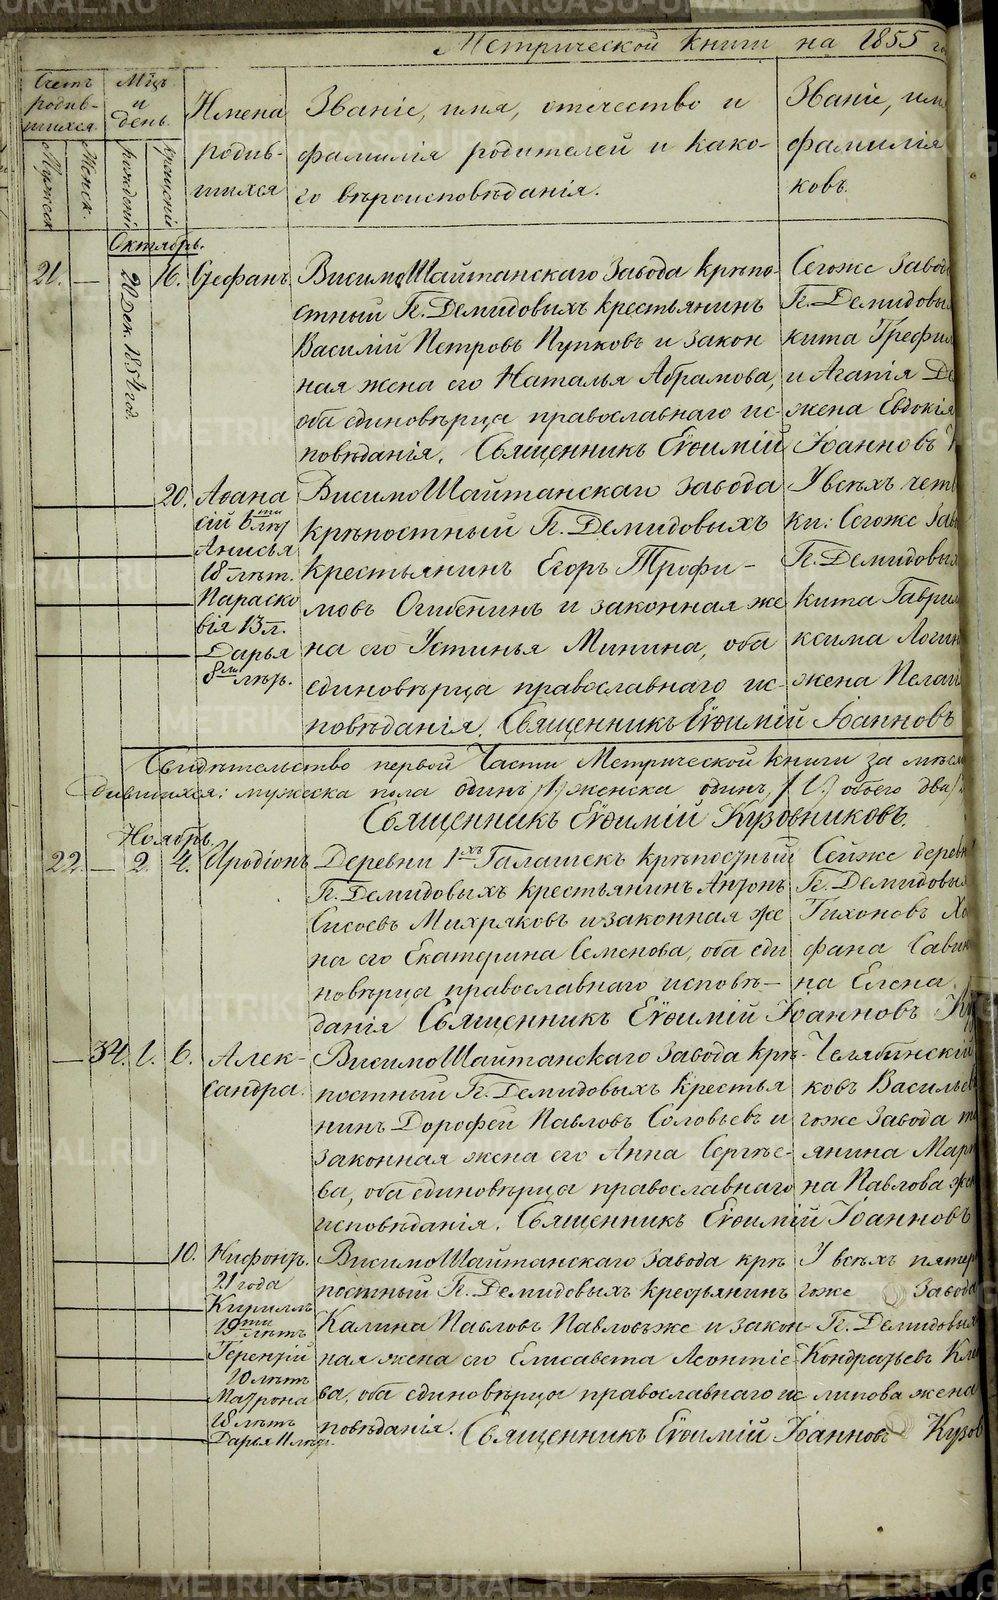 Метрической книги на 1855
Счетъ родив-шихся.
Мужеск.
Женск.
Мцъ и день.
рожденія
крещенія
Имена родив-шихся
Званіе, имя, отечество и
фамилія родителей и како-
го вѣроисповѣданія.
Званіе, имя
фамилія
ковъ.
Октябрь.
21. — 20 Дек. 1854 год. 16. Стефанъ
Висимо Шайтанскаго Завода Крѣпо-
стный Г. Демидовыхъ крестьянинъ
Василій Петровъ Пупковъ и закон
ная жена его Наталья Абрамова,
оба единовѣрца православнаго ис-
повѣданія. Священникъ Евѳимій Іоанновъ
Сегоже Завода
Г. Демидовы
кита Трефил
и Агапія Де
жена Евдокія
20. Аѳана
сій 6ти лѣт
Анисья
18 лѣт.
Параско
вія 13 л.
Дарья
8ми лѣт.
Висимо Шайтанскаго завода
крѣпостный Г. Демидовыхъ
крестьянинъ Егоръ Трофи-
мовъ Огибенинъ и законная же
на его Устинья Минина, оба
единовѣрца православнаго ис-
повѣданія. Священникъ Евѳимій Іоанновъ
У всѣхъ чет
ки: Сегоже Зав
Г. Демидовых
кита Гаврил
ксима Логин
жена Пелаг
Свидѣтельство первой Части Метрической книги за мѣся
дившихся: мужеска пола одинъ /1/ женска одинъ, /1./ обоего два/
Священникъ Евѳимій Кузовниковъ.
Ноябрь.
22. — 2. 4. Иродіонъ
Деревни 1хъ Галашекъ крѣпостный
Г. Демидовыхъ крестьянинъ Антонъ
Сисоевъ Михряковъ и законная же
на его Екатерина Семенова, оба еди
новѣрца православнаго исповѣ—
данія Священникъ Евѳимій Іоанновъ Ку
Сейже деревн
Г. Демидовых
Тихоновъ Хо
фана Савин
на Елена.
— 34. 1. 6. Алек-
сандра.
Висимо Шайтанскаго Завода крѣ-
постный Г. Демидовыхъ крестья
нинъ Дорофей Павловъ Соловьевъ и
законная жена его Анна Сергѣе-
ва, оба единовѣрца православнаго
исповѣданія. Священникъ Евѳимій Іоанновъ
Челябинскій
ковъ Василье
гоже Завода
янина Мар
на Павлова же
10. Нифонтъ.
21 года
Кириллъ
19ти лѣтъ
Терентій
10 лѣтъ
Матрона
18 лѣтъ
Дарья 11 лѣт.
Висимо Шайтанскаго завода крѣ
постный Г. Демидовыхъ крестьянинъ
Калина Павловъ Павловъже и закон-
ная жена его Елисавета Леонтіе-
ва, оба единовѣрца православнаго ис
повѣданія. Священникъ Евѳимій Іоанновъ Кузов
У всѣхъ пятер
гоже Завода
Г. Демидовых
Кондратьевъ Кли
липова жена
METRIKI.GASO-URAL.RU